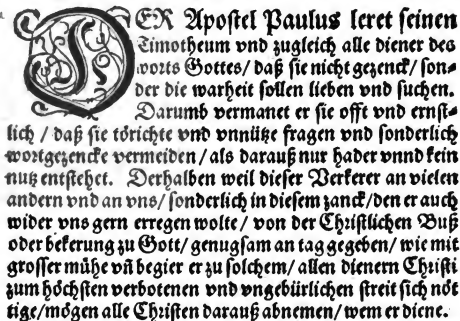 DER Apostel Paulus leret seinen
Timotheum vnd zugleich alle diener des
worts Gottes/ daß sie nicht gezenck/ son-
der die warheit sollen lieben vnd suchen.
Darumb vermanet er sie offt vnd ernst-
lich / daß sie törichte vnd vnnütze fragen vnd sonderlich
wortgezencke vermeiden / als darauß nur hader vnnd kein
nutz entstehet. Derhalben weil dieser Verkerer an vielen
andern vnd an vns/ sonderlich in diesem zanck/den er auch
wider vns gern erregen wolte / von der Christlichen Buß
oder bekerung zu Gott/ genugsam an tag gegeben/ wie mit
grosser mühe vñ begier er zu solchem/ allen dienern Christi
zum höchsten verbotenen vnd vngebürlichen streit sich nöt
tige/mögen alle Christen darauß abnemen/ wem er diene.